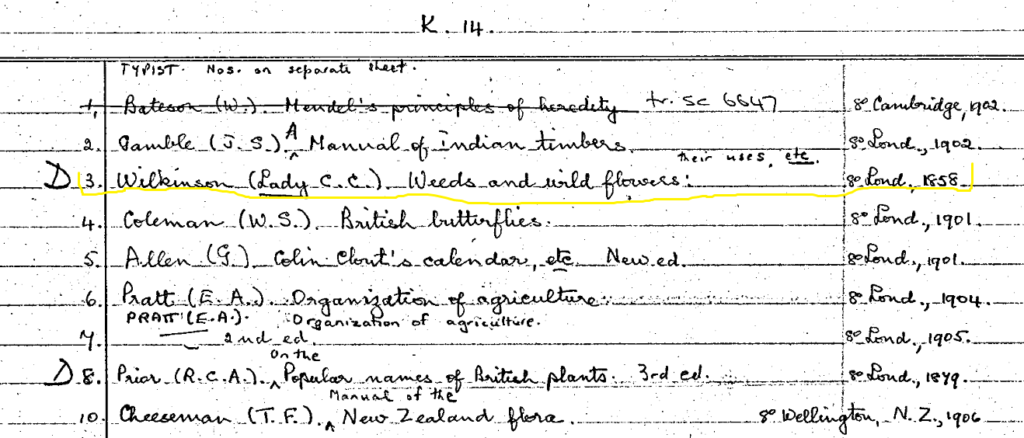 K. 14.
TYPIST. Nos. on separate sheet.
1, Bateson (W.). Mendel's principles of heredity tr. sc 6647 8º Cambridge, 1902.
2. Gamble (J. S.). A Manual of Indian timbers. 8º Lond., 1902.
D 3. Wilkinson (Lady C. C.). Weeds and wild flowers: their uses, etc. 8º Lond., 1858.
4. Coleman (W. S.). British butterflies. 8º Lond., 1901.
5. Allen (G.). Colin Clout's calendar, etc. New ed. 8º Lond., 1901.
6. Pratt (E. A.). Organization of agriculture. 8º Lond., 1904.
PRATT (E.A.). Organization of agriculture.
7. 2nd ed. 8º Lond., 1905.
D 8. Prior (R. C. A.). On the Popular names of British plants. 3rd ed. 8º Lond., 1879.
10. Cheeseman (T. F.). Manual of the New Zealand flora. 8º Wellington, N. Z., 1906